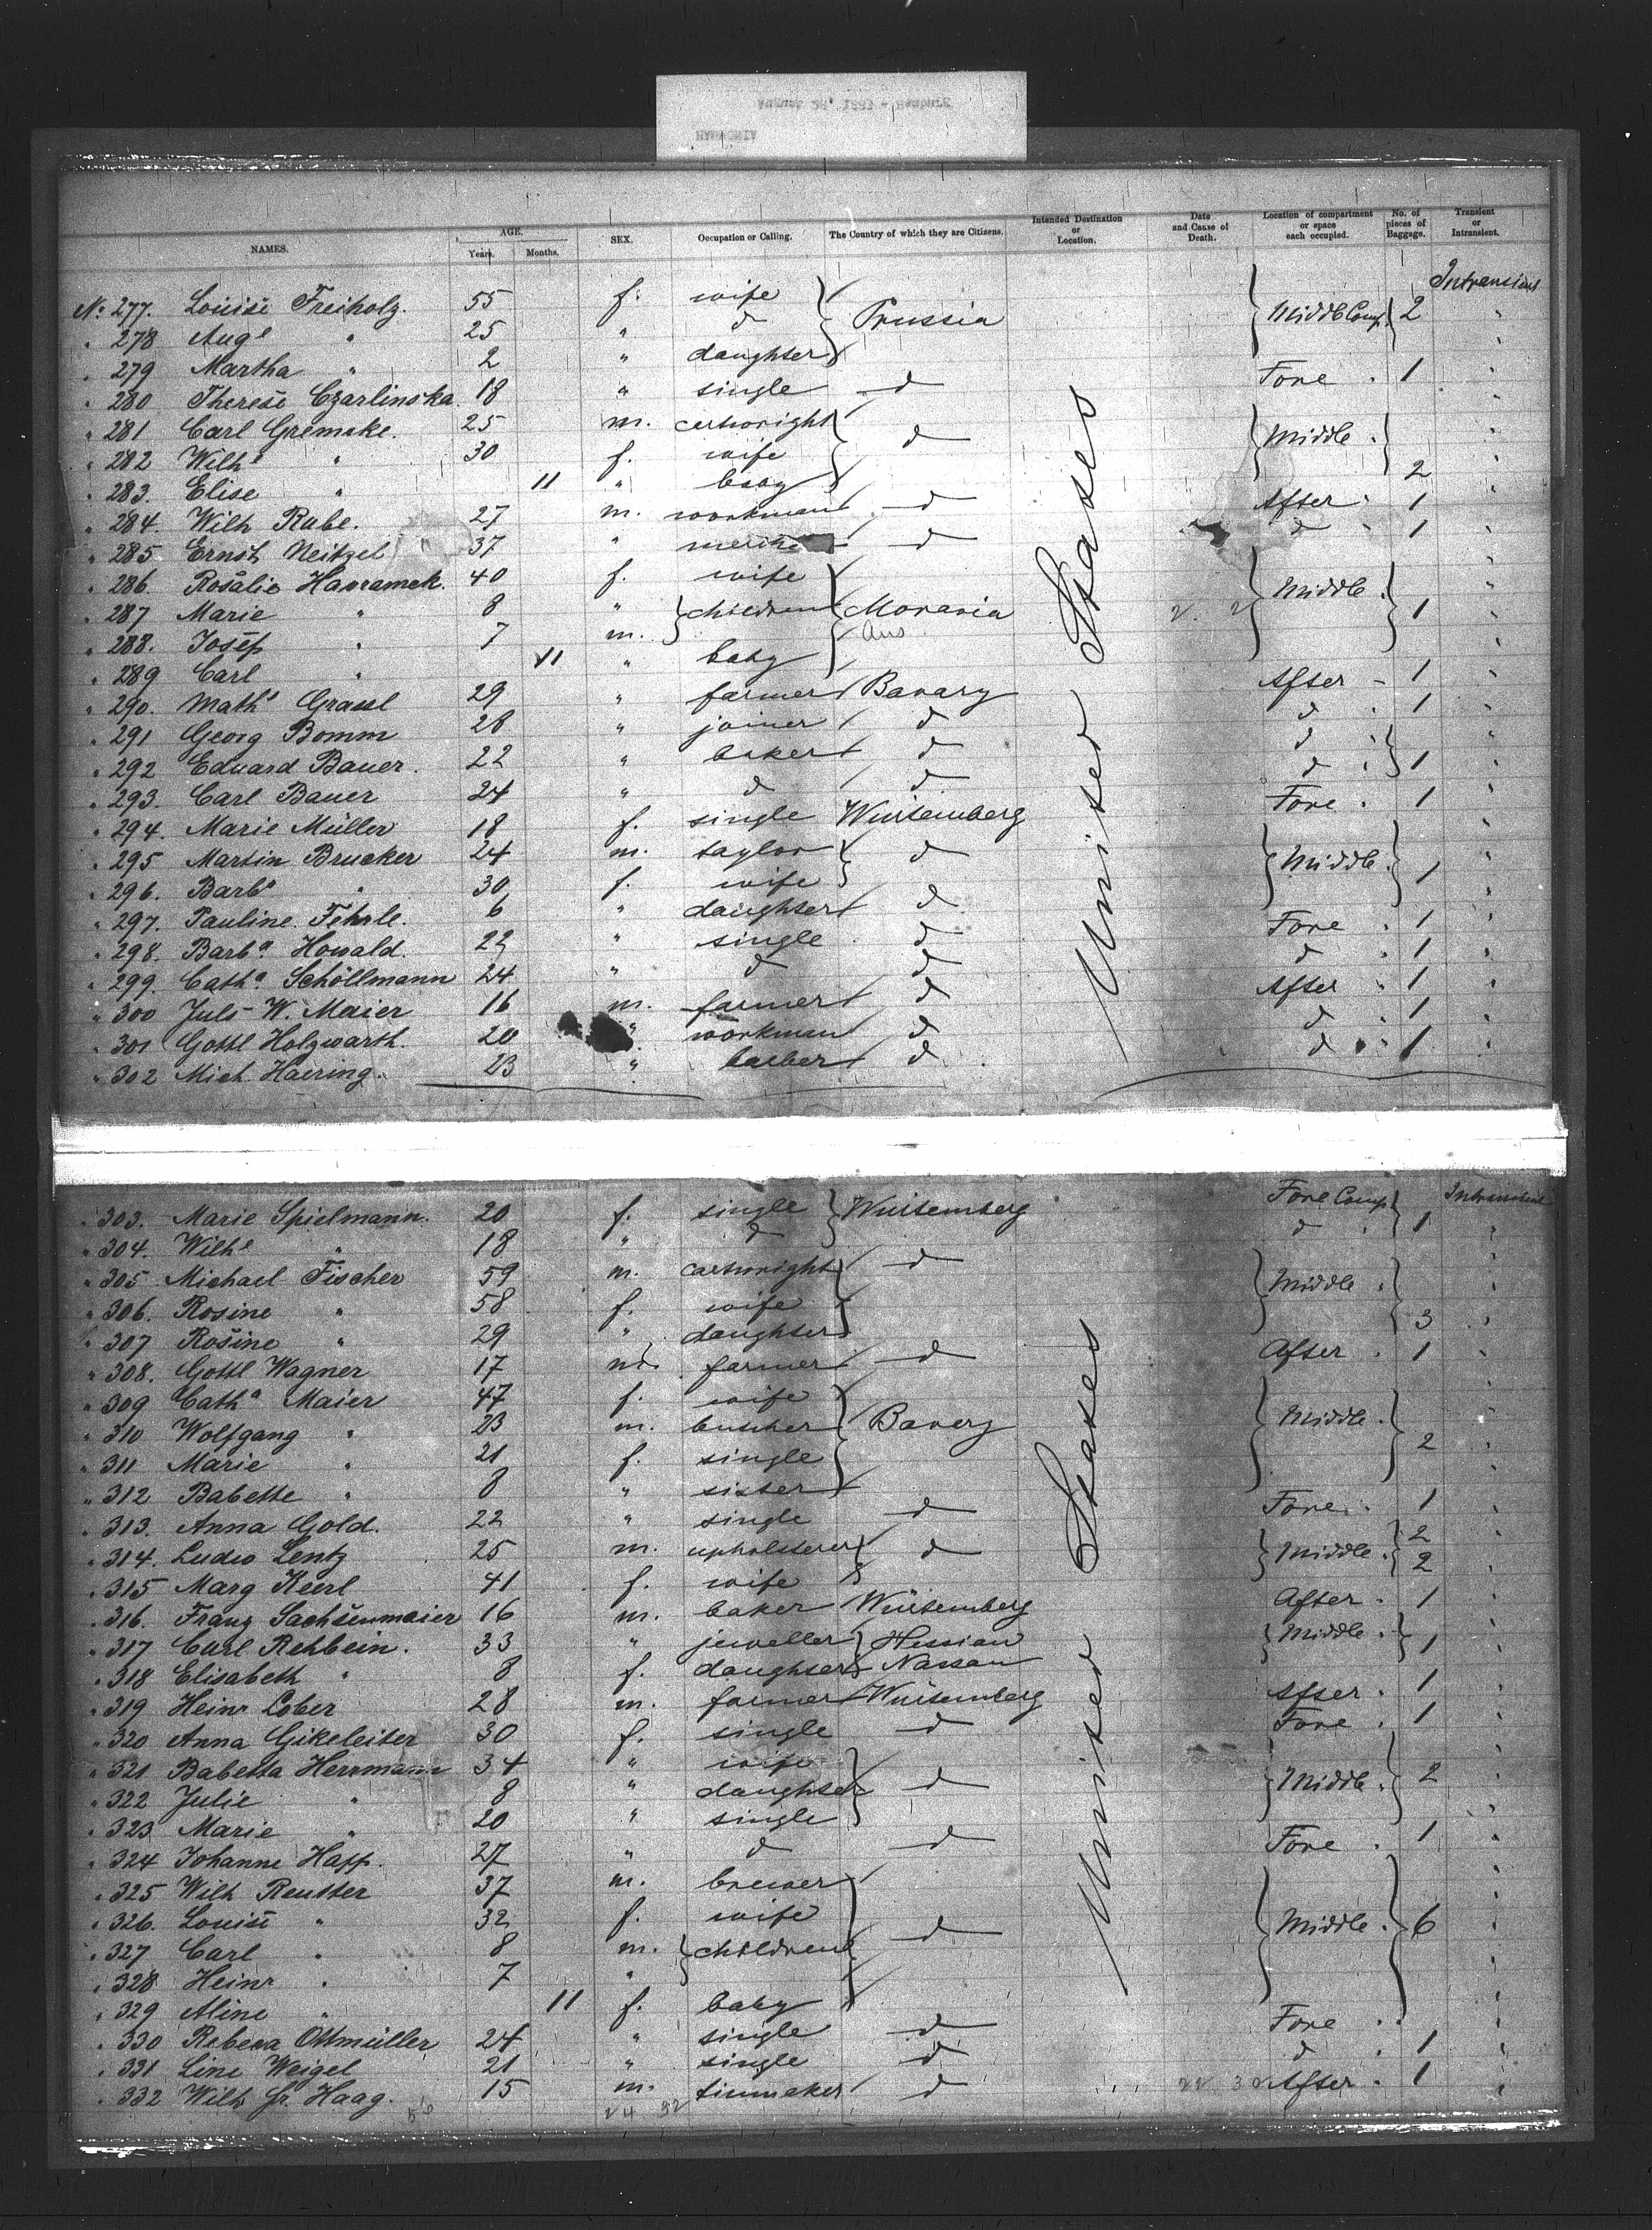 NAMES. AGE. Years. Months. SEX. Occupation or Calling. The Country of which they are Citizens. Intended Destination or Location. Date and Cause of Death. Location of compartment or space each occupied. No. of pieces of Baggage. Transient or Intransient.
No 277. Louise Freiholz. 55 f. wife Prussia Middle Comp. 2 Intransient
" 278 Auge " 25 " d "
" 279 Martha " 2 " daughter "
" 280 Therese Czarlinska. 18 " single d Fore " 1 "
" 281 Carl Gremske. 25 m. cartwright d Middle " "
" 282 Wilhe " 30 f. wife "
" 283. Elise " 11 " baby 2 "
" 284. Wilh Rabe. 27 m. workman d After " 1 "
" 285 Ernst Neitzel 37 " d d " 1 "
" 286. Rosalie Havramek. 40 f. wife Moravia Middle " "
" 287 Marie " 8 " children 1 "
" 288. Josef " 7 m. Aus "
" 289 Carl " 11 " baby "
" 290. Maths Grassl 29 " farmer Bavary After " 1 "
" 291 Georg Bomm 28 " joiner d d " 1 "
" 292 Eduard Bauer. 22 " baker d d " "
" 293. Carl Bauer 24 " d d d " 1 "
" 294. Marie Müller 18 f. single Würtemberg Fore " 1 "
" 295 Martin Brucker 24 m. taylor d Middle " "
" 296. Barba " 30 f. wife 1 "
" 297. Pauline Fehrle. 6 " daughter d "
" 298. Barba. Howald. 22 " single d Fore " 1 "
" 299. Catha Schöllmann 24 " d d d " 1 "
" 300 Juls W. Maier 16 m. farmer d After " 1 "
" 301 Gottl Holzwarth. 20 " workman d d " 1 "
" 302 Mich. Haering. 23 " barber d d " 1
United States
" 303. Marie Spielmann. 20 f. single Würtemberg Fore Comp Intransient
" 304. Wilhe " 18 " d d " 1 "
" 305 Michael Fischer 59 m. cartwright d Middle " "
" 306. Rosine " 58 f. wife "
" 307 Rosine " 29 " daughter 3 "
" 308. Gottl Wagner 17 m. farmer d After " 1 "
" 309 Catha Maier 47 f. wife Bavery Middle " "
" 310 Wolfgang " 23 m. butcher "
" 311 Marie " 21 f. single 2 "
" 312 Babette " 8 " sister "
" 313. Anna Gold. 22 " single d Fore " 1 "
" 314. Ludw Lentz 25 m. upholsterer d Middle " 2 "
" 315 Marg Keerl 41 f. wife 2 "
" 316. Franz Sachsenmaier 16 m. baker Würtemberg After " 1 "
" 317 Carl Rehbein. 33 " jeweller Hessian Middle " "
" 318 Elisabeth " 8 f. daughter Nassau 1 "
" 319 Heinr Lober 28 m. farmer Würtemberg After " 1 "
" 320 Anna Gikeleiter 30 f. single d Fore " 1 "
" 321 Babetta Herrmann 34 " wife d Middle " 2 "
" 322 Julie " 8 " daughter "
" 323 Marie " 20 " single "
" 324 Johanne Happ. 27 " d d Fore " 1 "
" 325 Wilh Reutter 37 m. brewer d Middle " 6 "
" 326. Louise " 32 f. wife "
" 327 Carl " 8 m. children "
" 328 Heinr " 7 " "
" 329 Aline " 11 f. baby "
" 330 Rebecca Ottmüller 24 " single d Fore " "
" 331 Line Weigel 21 " single d d " 1 "
" 332 Wilh Gr. Haag. 15 m. tinmaker d After " 1 "
United States